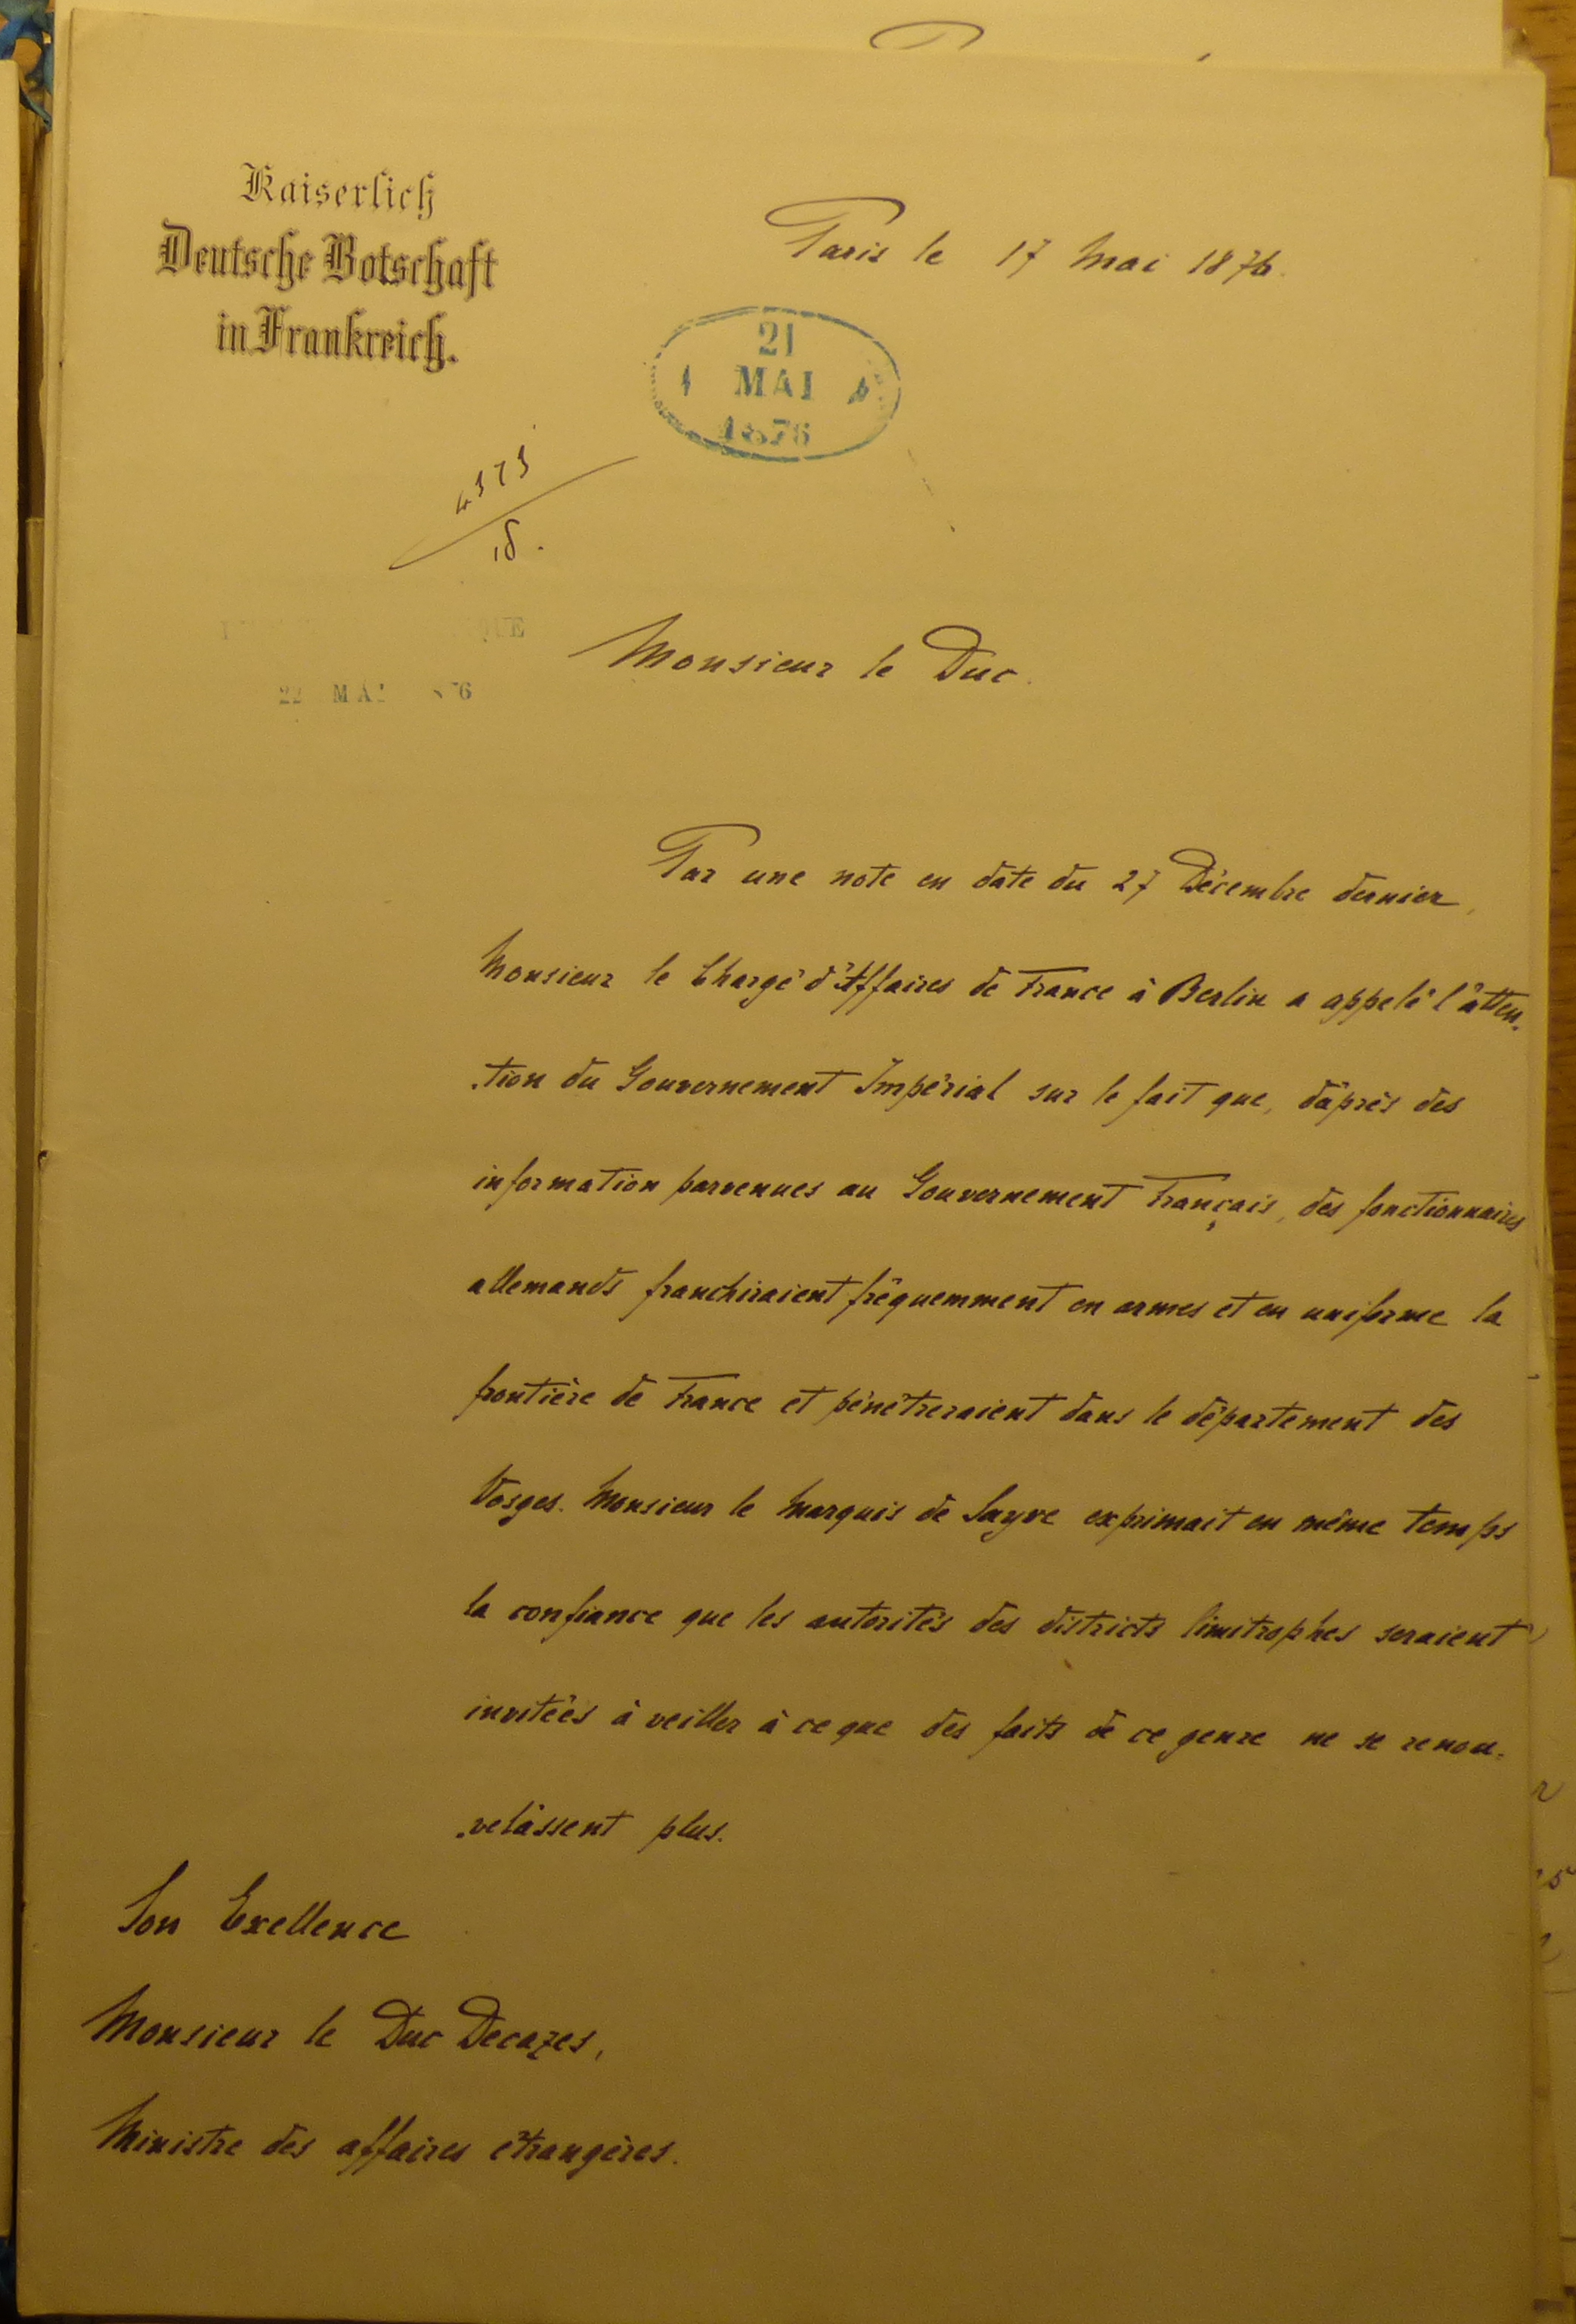 Kaiserlich
Deutsche Botschaft
in Frankreich.
Paris le 17 Mai 1876.
21
MAI
1876
22 MAI
Monsieur le Duc.
Par une note en date du 27 Décembre dernier,
Monsieur le Chargé d'Affaires de France à Berlin a appelé l'atten-
-tion du Gouvernement Impérial sur le fait que, d'après des
information parvenues au Gouvernement Français, des fonctionnaires
allemands franchiraient fréquemment en armes et en uniforme la
frontière de France et pénétreraient dans le département des
Vosges. Monsieur le Marquis de Sayve exprimait en même temps
la confiance que les autorités des districts limitrophes seraient
invitées à veiller à ce que des faits de ce genre ne se renou-
-velâssent plus.
Son Exellence
Monsieur le Duc Decazes,
Ministre des affaires étrangères.